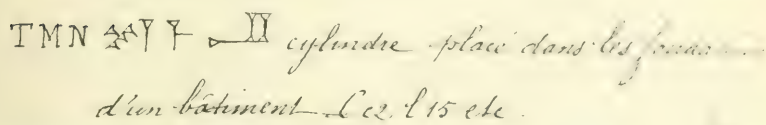 TMN 𒋼𒈨𒂗 cylindre placé dans les
d'un bâtiment C c2. l 15 etc.